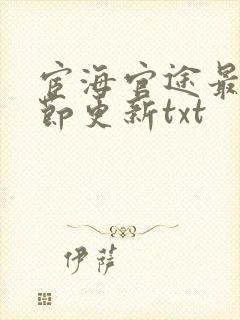 宦海官途最
节更新txt
伊萨